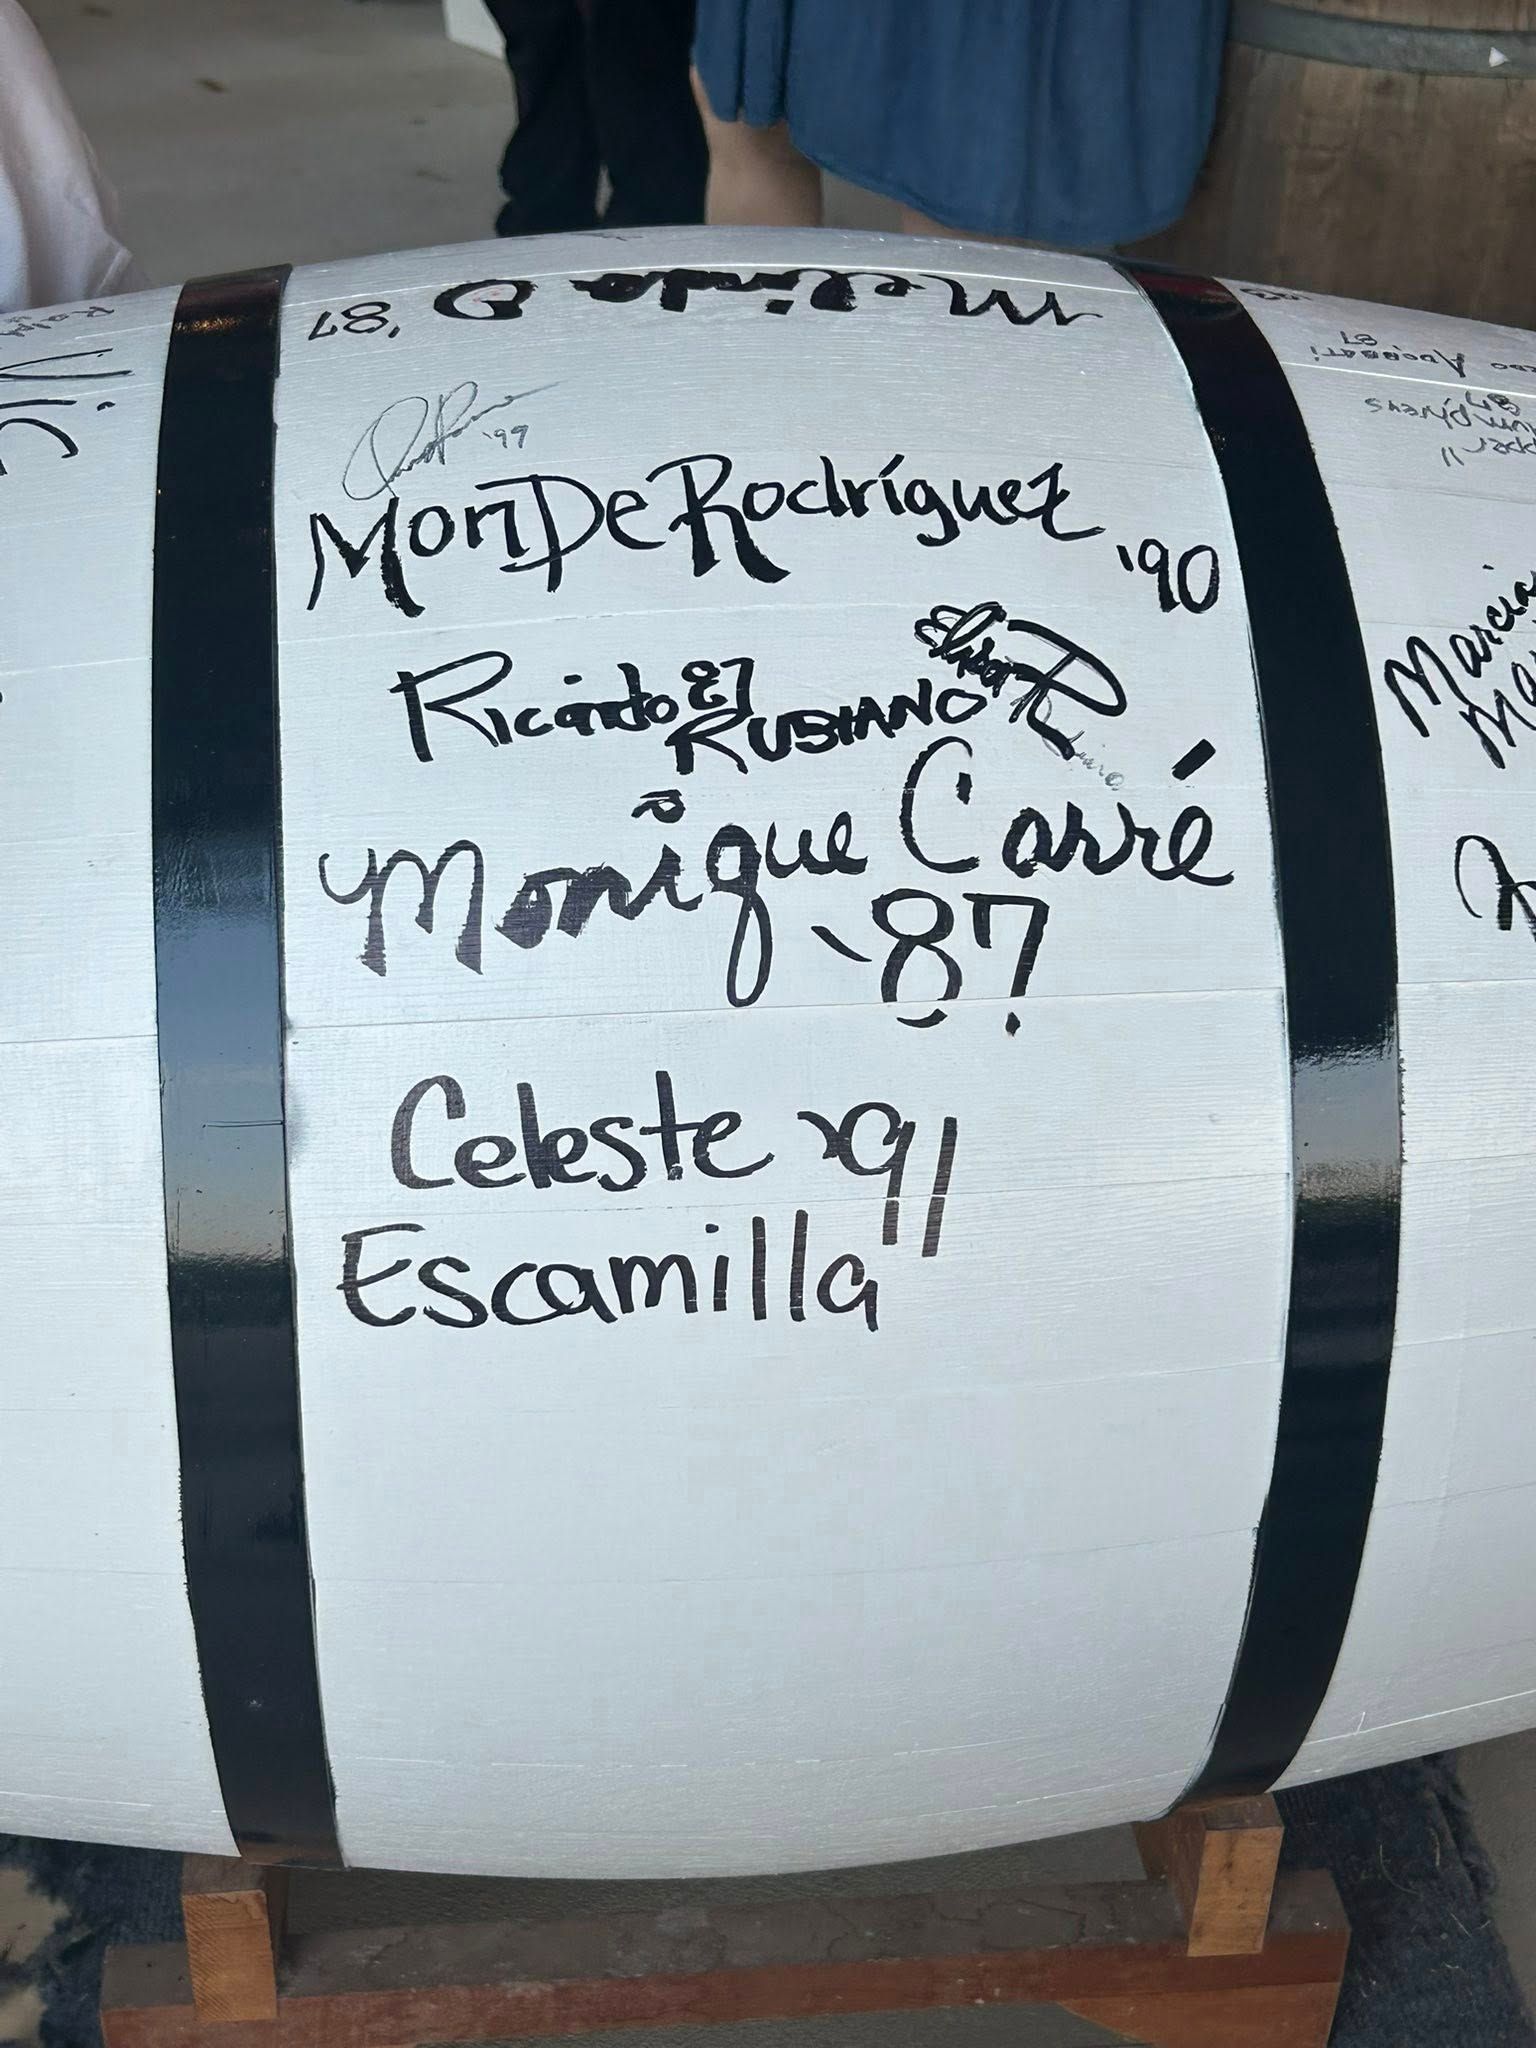 Melinda D '87
'99
MonDeRodríguez '90
Ricardo 87
RUBIANO
Monique Carré
'87
Celeste '91
Escamilla
Ralph
87
87
Marcia